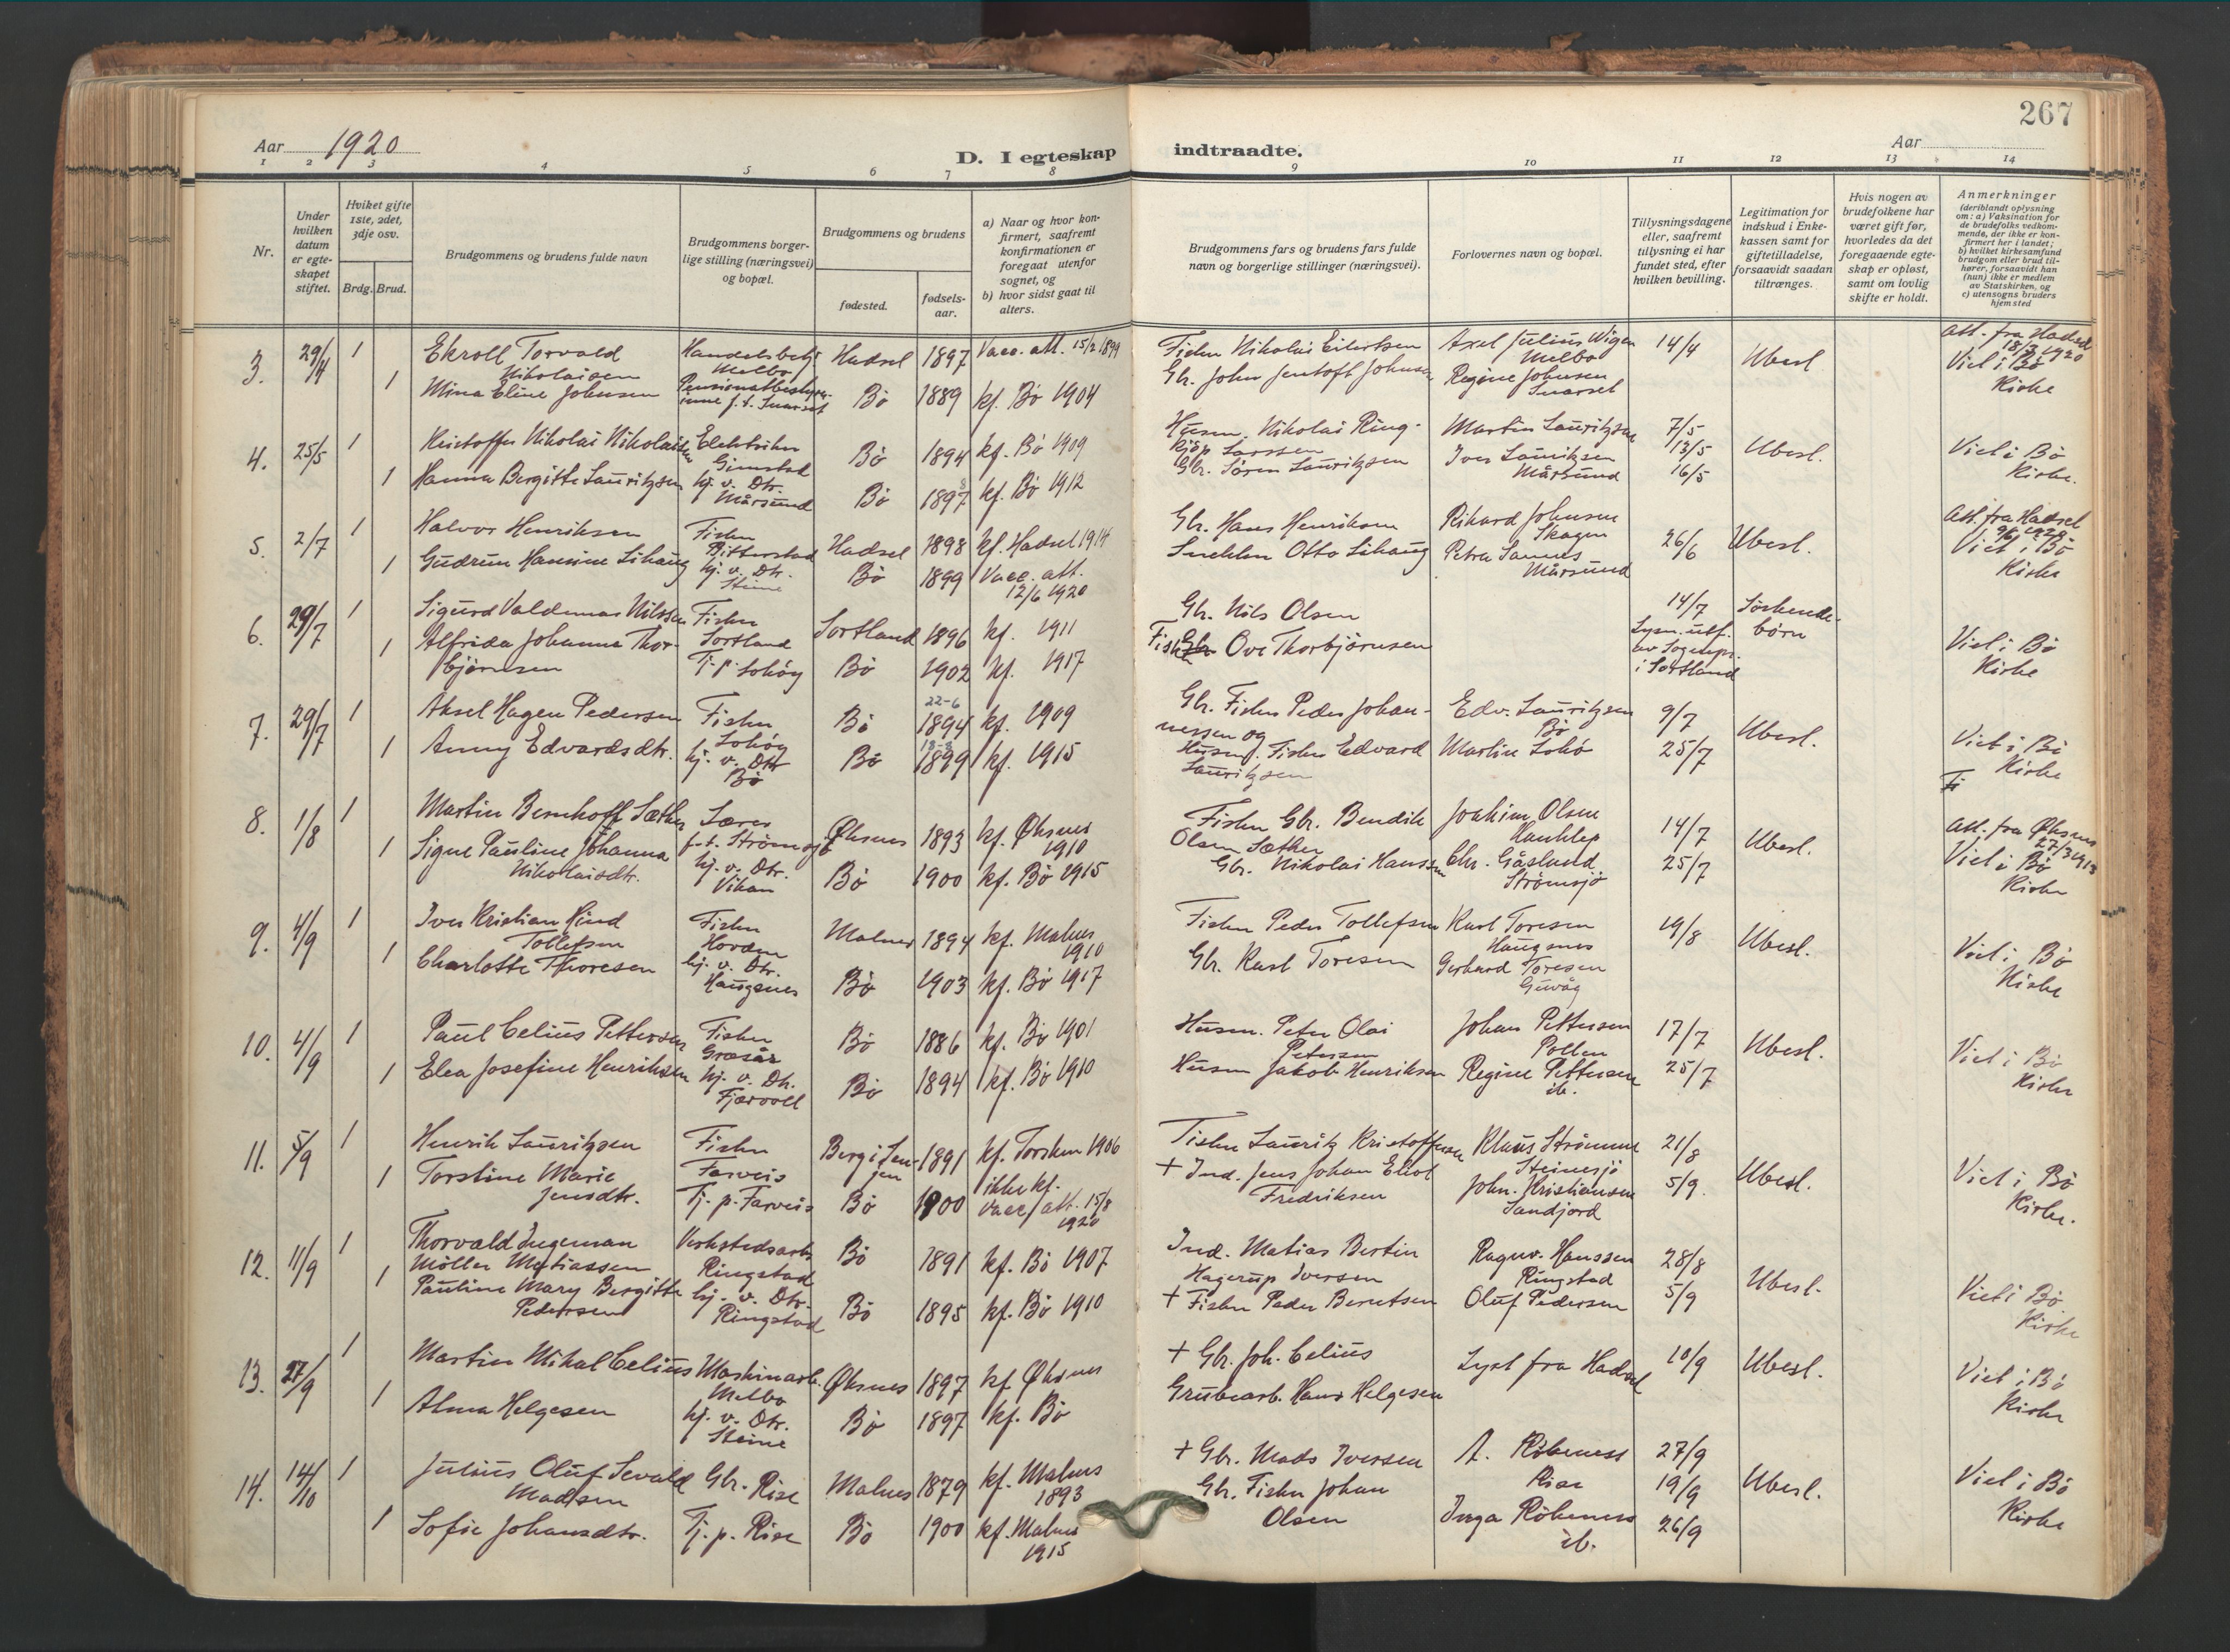 267
Aar 1920
D. I egteskap indtraadte.
Aar
1 2 3 4 5 6 7 8 9 10 11 12 13 14
Nr.
Under hvilken datum er egte-skapet stiftet.
Hviket gifte 1ste, 2det, 3dje osv.
Brdg. Brud.
Brudgommens og brudens fulde navn
Brudgommens borger-lige stilling (næringsvei) og bopæl.
Brudgommens og brudens
fødested.
fødsels-aar.
a) Naar og hvor kon-firmert, saafremt konfirmationen er foregaat utenfor sognet, og
b) hvor sidst gaat til alters.
Brudgommens fars og brudens fars fulde navn og borgerlige stillinger (næringsvei).
Forlovernes navn og bopæl.
Tillysningsdagene eller, saafremt tillysning ei har fundet sted, efter hvilken bevilling.
Legitimation for indskud i Enke-kassen samt for giftetilladelse, forsaavidt saadan tiltrænges.
Hvis nogen av brudefolkene har været gift før, hvorledes da det foregaaende egte-skap er opløst, samt om lovlig skifte er holdt.
Anmerkninger (deriblandt oplysning om: a) Vaksination for de brudefolks vedkom-mende, der ikke er kon-firmert her i landet; b) hvilket kirkesamfund brudgom eller brud til-hører, forsaavidt han (hun) ikke er medlem av Statskirken, og c) utensogns bruders hjemsted
3. 29/4 1 Ekroll Torvald Nikolaisen Handelsbetj. Melbo Hadsel 1897 Vacc. att. 15/2 1899 Fisker Nikolai Eilertsen Axel Julius Wigen Melbo 14/4 Ubesl. Att. fra Hadsel 18/3 1920
1 Mina Eline Johnsen Pensionatbestyrerinne f.t. Snarset Bö 1889 kf. Bö 1904 Gbr. John Jentoft Johnsen Regine Johnsen Snarset Viet i Bö Kirke
4. 25/5 1 Kristoffer Nikolai Nikolaisen Elektriker Gimstad Bö 1894 kf. Bö 1909 Husm. Nikolai Ring-kjöp Larssen Martin Lauritzsen 7/5 13/5 Ubesl. Viet i Bö Kirke.
1 Hanna Bergitte Lauritzsen hj. v. Dtr. Mårsund Bö 1897 8 kf. Bö 1912 Gbr. Sören Lauritzsen Iver Lauritzsen Mårsund 16/5
5. 2/7 1 Halvor Henriksen Fisker Ritterstad Hadsel 1898 kf. Hadsel 1914 Gbr. Hans Henriksen Rikard Johnsen Skagen 26/6 Ubesl. Att. fra Hadsel 9/6 1920
1 Gudrun Hansine Lihaug hj. v. Dtr. Steine Bö 1899 Vacc. att. 12/6 1920 Snekker Otto Lihaug Petra Mårsund Viet i Bö Kirke
6. 29/7 1 Sigurd Valdemar Nilssen Fisker Sortland Sortland 1896 kf. 1911 Gbr. Nils Olsen 14/7 Lysn. utf. av Sogneprs. i Sortland Sörkende-börn Viet i Bö Kirke
1 Alfrida Johanna Thor-björnsen Tj. p. Lohög Bö 1902 kf. 1917 Fisker Ove Thorbjörnsen
7. 29/7 1 Aksel Hagen Pedersen Fisker Lohög Bö 22-6 1894 kf. 1909 Gbr. Fisker Peder Johan-nessen og Edv. Lauritzsen Bö 9/7 Ubesl. Viet i Bö Kirke
1 Anny Edvardsdtr. hj. v. Dtr Bö Bö 1899 kf. 1915 Husm. Fisker Edvard Lauritzsen Martin Lohö 25/7
Fi
8. 1/8 1 Martin Bernhoff Sæther Lærer f.t. Strömsjö Öksnes 1893 kf. Öksnes 1910 Fisker Gbr. Bendik Olsen Sæther Joakim Olsen 14/7 Ubesl. Att. fra Öksnes 27/3 1913
1 Signe Pauline Johanna Nikolaisdtr. hj. v. Dtr. Vikan Bö 1900 kf. Bö 1915 Gbr. Nikolai Hanssen Chr. Gåslund Strömsjö 25/7 Viet i Bö Kirke
9. 4/9 1 Iver Kristian Hind Tollefsen Fisker Hovden Malnes 1894 kf. Malnes 1910 Fisker Peder Tollefsen Karl Toresen Haugsnes 19/8 Ubesl. Viet i Bö Kirke
1 Charlotte Thoresen hj. v. Dtr. Haugsnes Bö 1903 kf. Bö 1917 Gbr. Karl Toresen Gerhard Toresen Guvåg
10. 4/9 1 Paul Celius Pettersen Fisker Græsår Bö 1886 kf. Bö 1901 Husm. Peter Olai Petersen Johan Pettersen Pollen 17/7 Ubesl. Viet i Bö Kirke
1 Elea Josefine Henriksen hj. v. Dtr. Fjærvoll Bö 1894 kf. Bö 1910 Husm Jakob Henriksen Regine Pettersen ib. 25/7
11. 5/9 1 Henrik Lauritzsen Fisker Farveis Berg i Sen-jen 1891 kf. Torsken 1906 Fisker Lauritz Kristoffersen Klaus Strömme Steinesjö 21/8 Ubesl. Viet i Bö Kirke.
1 Torstine Marie Jensdtr. Tj. p. Farveis Bö 1900 ikke kf. Vacc. att. 15/8 1920 + Ind. Jens Johan Eliot Fredriksen John. Kristiansen Sandjord 5/9.
12. 11/9 1 Thorvald Ingeman Möller Matiassen Verkstedsarb. Ringstad Bö 1891 kf. Bö 1907 Ind. Matias Bertin Hagerup Iversen Ragnv. Hanssen Ringstad 28/8 Ubesl. Viet i Bö Kirke
1 Pauline Mary Bergitte Pedersen hj. v. Dtr. Ringstad Bö 1895 kf. Bö 1910 + Fisker Peder Berntsen Oluf Pedersen 5/9
13. 27/9 1 Martin Mikal Celius Maskinarb. Melbo Öksnes 1897 kf. Öksnes + Gbr. Joh. Celius Lyst fra Hadsel 10/9 Ubesl. Viet i Bö Kirke
1 Alma Helgesen hj. v. Dtr. Steine Bö 1897 kf. Bö Grubearb. Hans Helgesen
14. 14/10 1 Julius Oluf Sevald Madsen Gbr. Rise Malnes 1879 kf. Malnes 1893 + Gbr. Mads Iversen A. Rökeness Rise 27/9 19/9 Ubesl. Viet i Bö Kirke
1 Sofie Johansdtr. Tj. p. Rise Bö 1900 kf. Malnes 1915 Gbr. Fisker Johan Olsen Inga Rökeness ib. 26/9